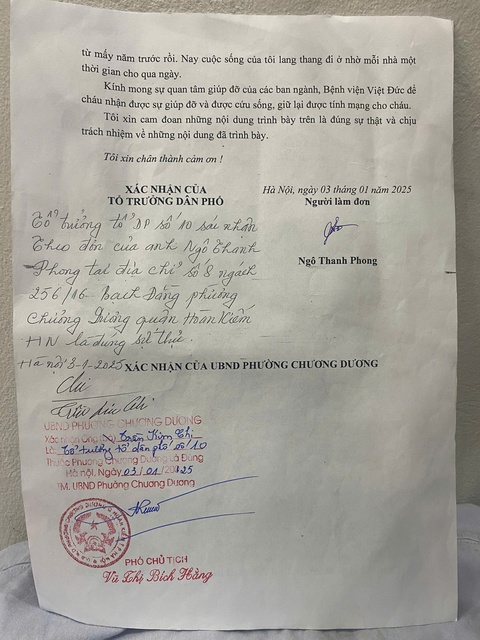 từ mấy năm trước rồi. Nay cuộc sống của tôi lang thang đi ở nhờ mỗi nhà một
thời gian cho qua ngày.
Kính mong sự quan tâm giúp đỡ của các ban ngành, Bệnh viện Việt Đức để
cháu nhận được sự giúp đỡ và được cứu sống, giữ lại được tính mạng cho cháu.
Tôi xin cam đoan những nội dung trình bày trên là đúng sự thật và chịu
trách nhiệm về những nội dung đã trình bày.
Tôi xin chân thành cảm ơn !
XÁC NHẬN CỦA
TỔ TRƯỞNG DÂN PHỐ
Hà Nội, ngày 03 tháng 01 năm 2025
Người làm đơn
Ngô Thanh Phong
Tổ trưởng tổ DP số 10 xác nhận
Theo đơn của anh Ngô Thanh
Phong tại địa chỉ số 8 ngách
256/16 Bạch Đằng phường
Chương Dương quận Hoàn Kiếm
HN là đúng sự thật.
Hà nội 3-1-2025
XÁC NHẬN CỦA UBND PHƯỜNG CHƯƠNG DƯƠNG
Chi
UBND PHƯỜNG CHƯƠNG DƯƠNG
Xác nhận Ông (bà) Trần Kim Chi
Là Tổ trưởng tổ dân phố số 10
Thuộc Phường Chương Dương Là Đúng
Hà nội, Ngày 03/01/2025
TM. UBND Phường Chương Dương
PHÓ CHỦ TỊCH
Vũ Thị Bích Hằng